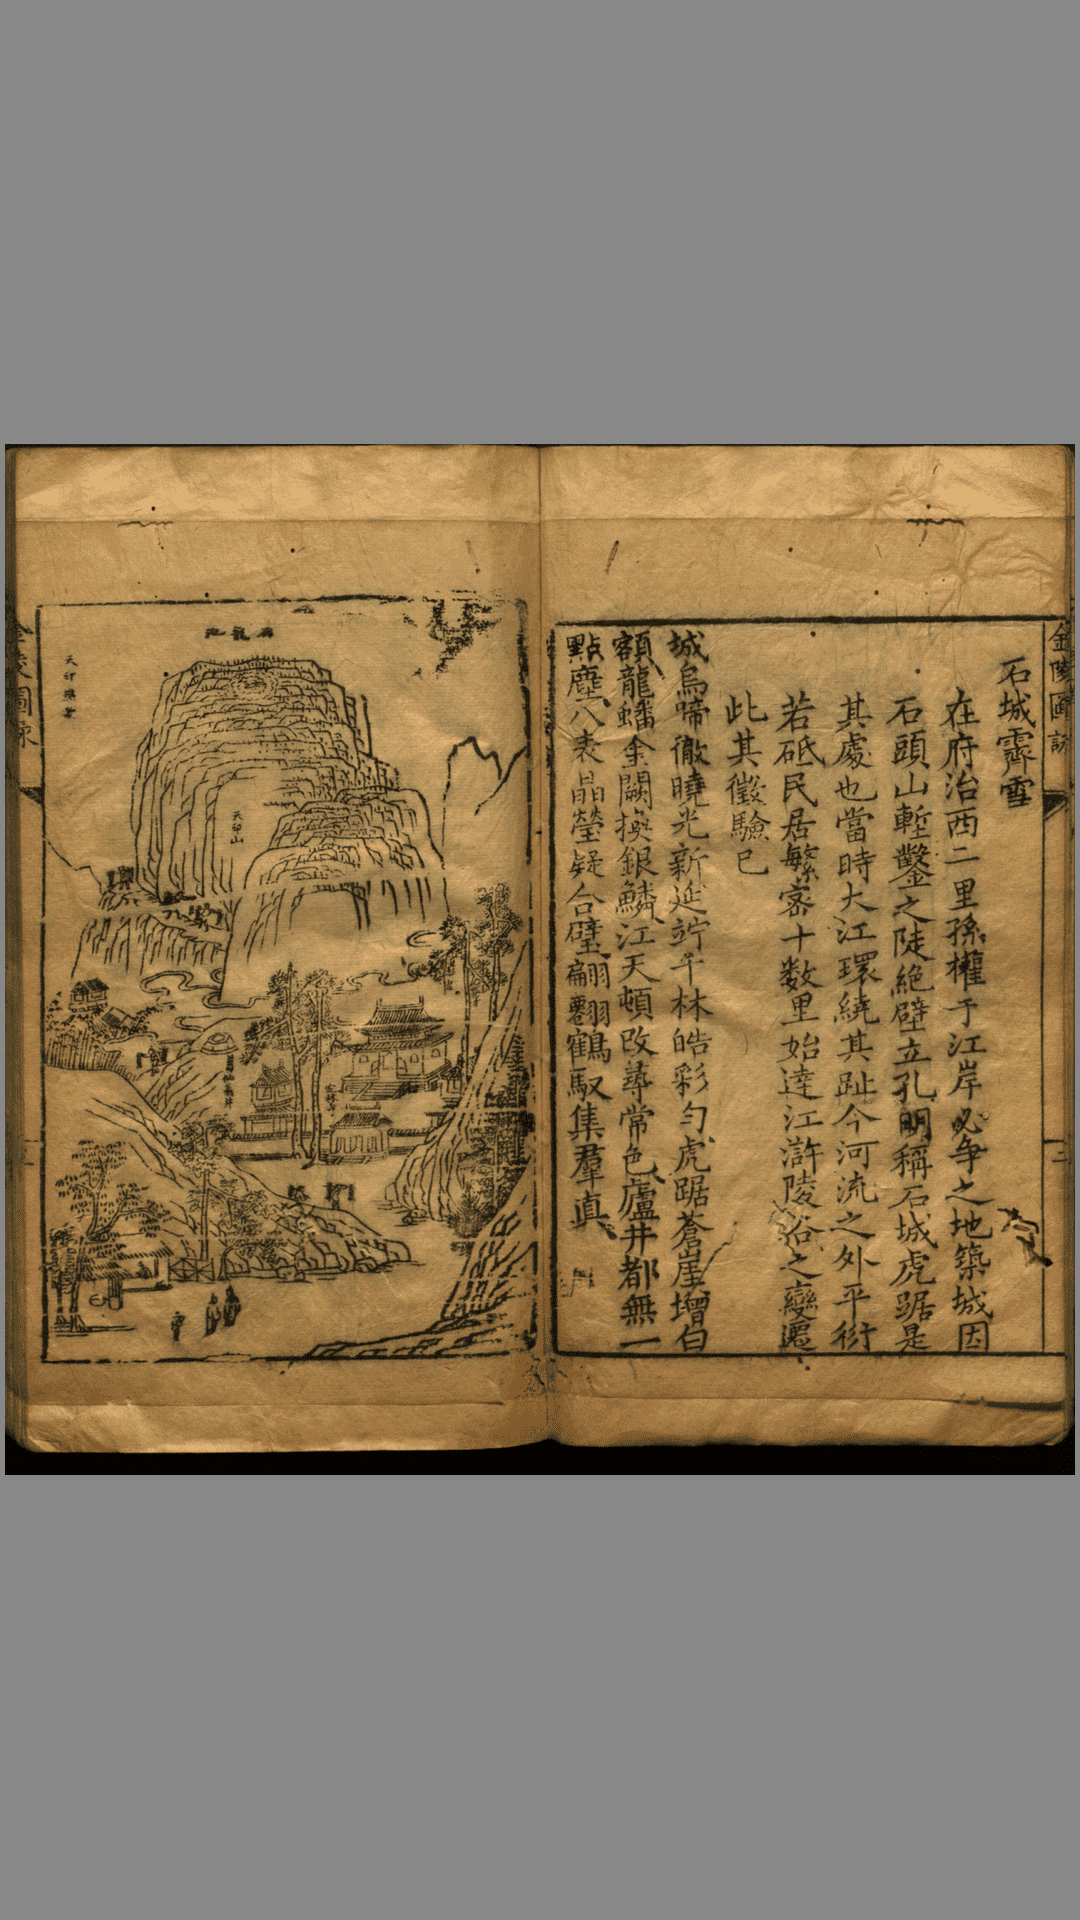 金陵圖詠
二
石城霽雪
在府治西二里孫權于江岸必争之地築城因
石頭山塹鑿之陡絶壁立孔明稱石城虎踞是
其處也當時大江環繞其趾今河流之外平衍
若砥民居繁宻十数里始達江滸陵谷之變遷
此其徵驗已
城烏啼徹曉光新延竚千林皓彩勻虎踞蒼崖增白
額龍蟠金闕換銀鱗江天頓改尋常色廬井都無一
點塵八表晶瑩疑合璧翩翻鶴馭集羣真
龍池
天印樵歌
天印山
定林寺